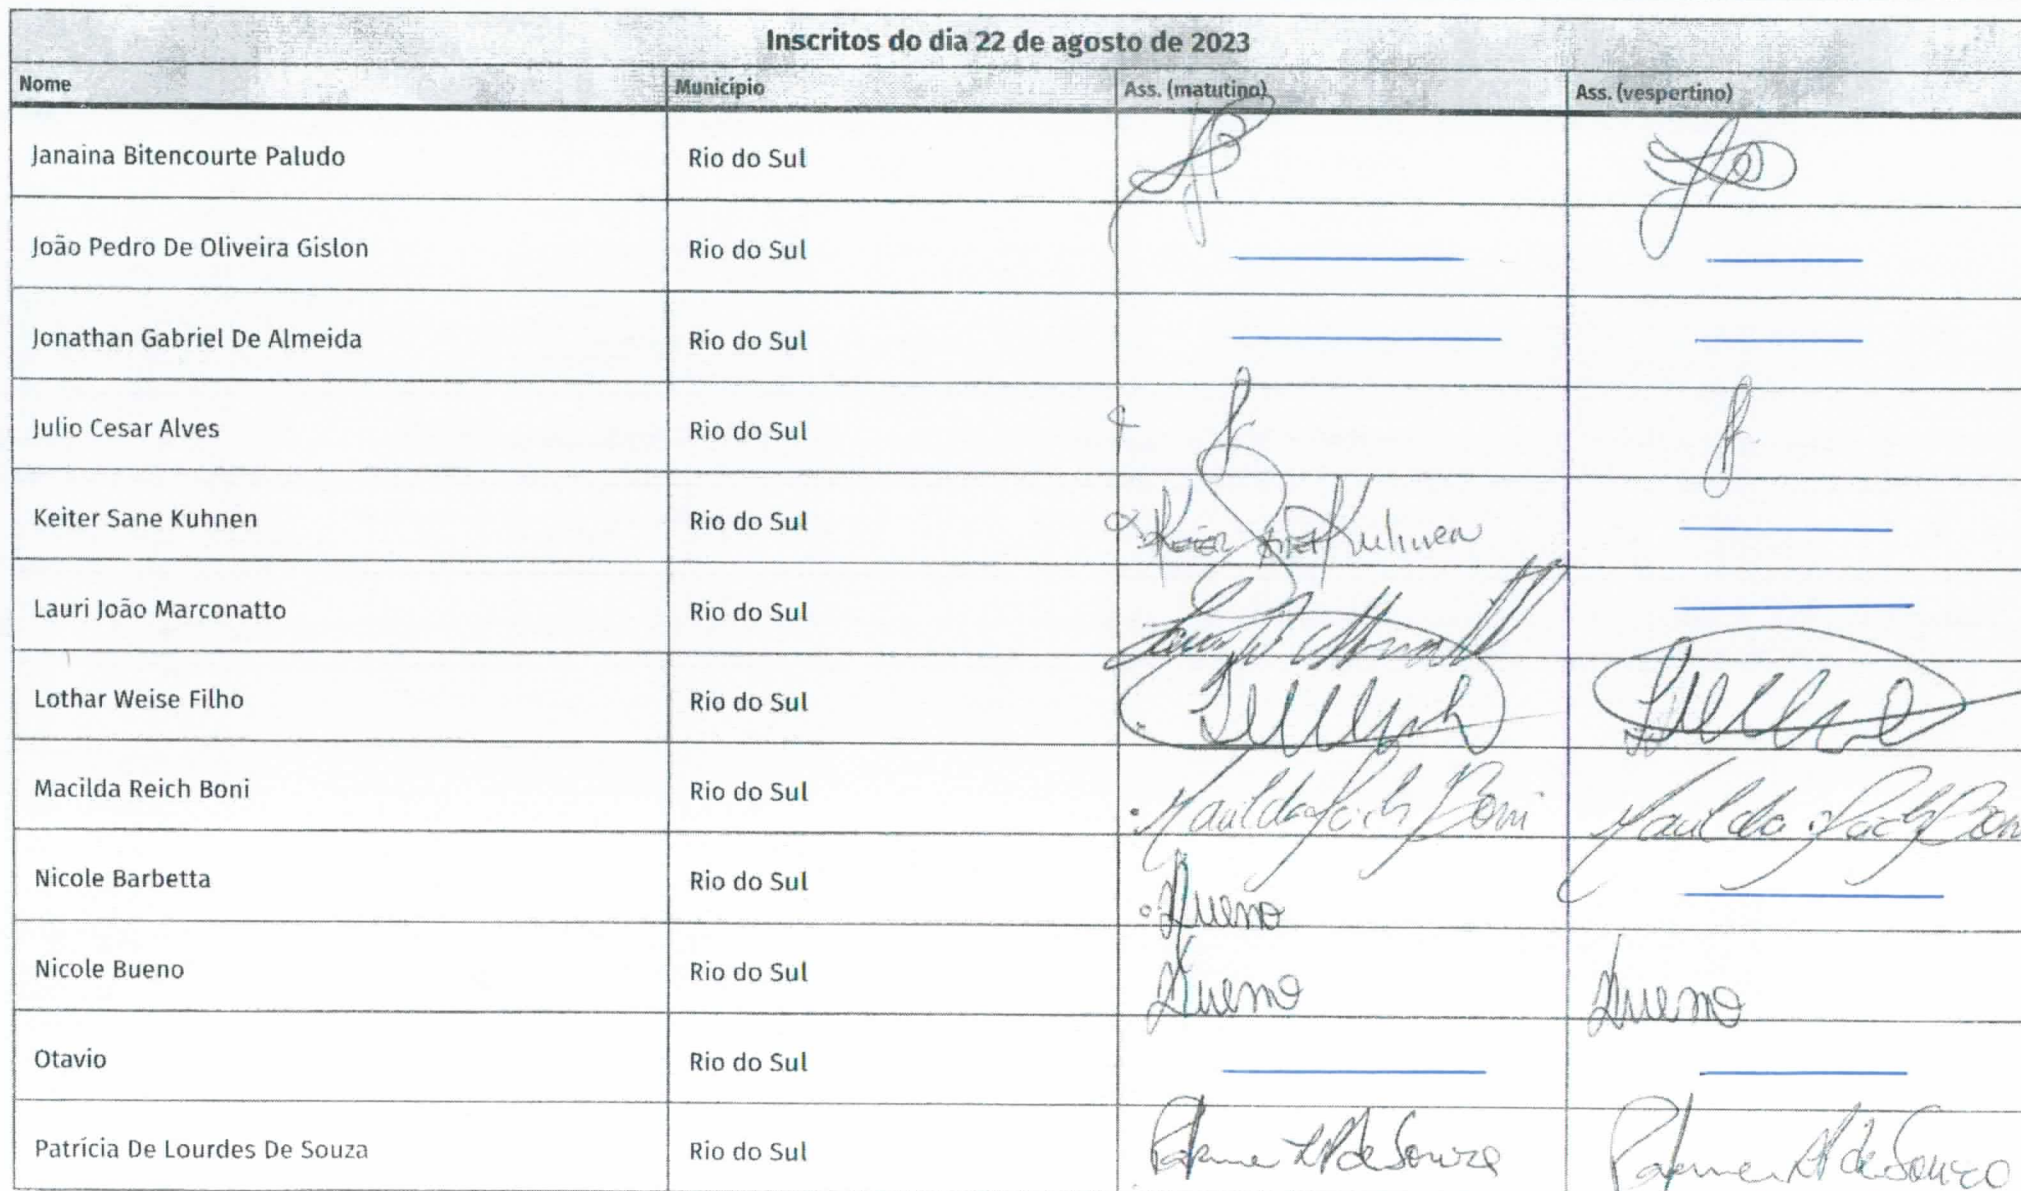 Inscritos do dia 22 de agosto de 2023
Nome Município Ass. (matutino) Ass. (vespertino)
Janaina Bitencourte Paludo Rio do Sul
João Pedro De Oliveira Gislon Rio do Sul
Jonathan Gabriel De Almeida Rio do Sul
Julio Cesar Alves Rio do Sul
Keiter Sane Kuhnen Rio do Sul Kuhnen
Lauri João Marconatto Rio do Sul
Lothar Weise Filho Rio do Sul
Macilda Reich Boni Rio do Sul Macilda Reich Boni Macilda Reich Boni
Nicole Barbetta Rio do Sul Bueno
Nicole Bueno Rio do Sul Bueno Bueno
Otavio Rio do Sul
Patrícia De Lourdes De Souza Rio do Sul de Souza de Souza